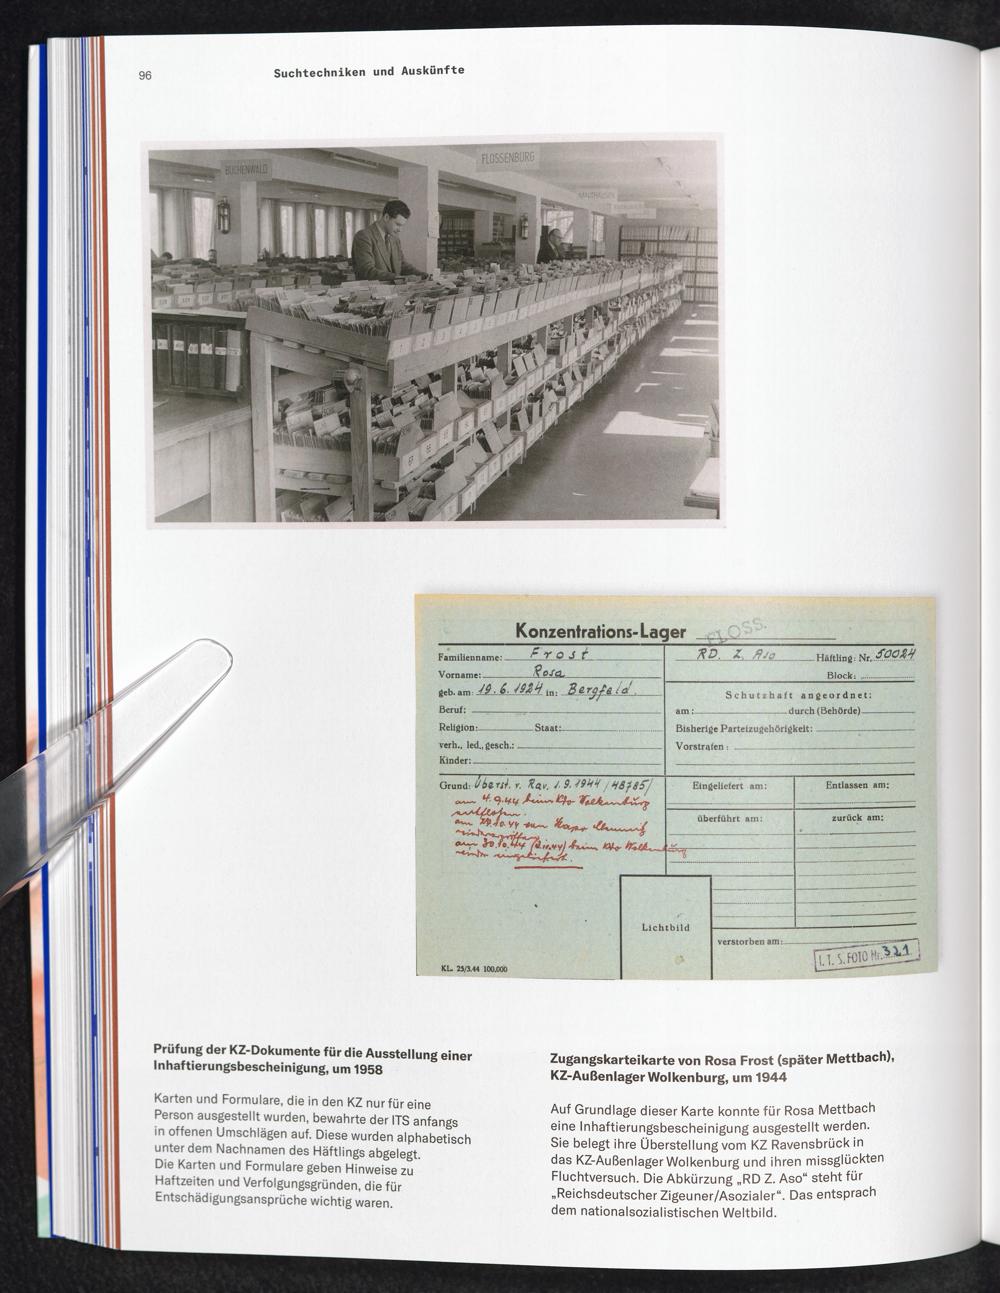 96
Suchtechniken und Auskünfte
BUCHENWALD
FLOSSENBÜRG
MAUTHAUSEN
Konzentrations-Lager FLOSS.
Familienname: Frost
RD. Z. Aso Häftling: Nr. 50024
Vorname: Rosa
Block:
geb. am: 19.6.1924 in: Bergfeld.
Schutzhaft angeordnet:
Beruf:
am: durch (Behörde)
Religion: Staat:
Bisherige Parteizugehörigkeit:
verh., led., gesch.:
Vorstrafen:
Kinder:
Grund: Überst. v. Rav. 1.9.1944 /48785/
am 4.9.44 beim Kdo Wolkenburg
entflohen.
am 30.10.44 beim Kdo Wolkenburg
wieder eingeliefert.
Eingeliefert am:
Entlassen am:
überführt am:
zurück am:
Lichtbild
verstorben am:
I. T. S. FOTO Nr. 321
KL. 25/3.44 100.000
Prüfung der KZ-Dokumente für die Ausstellung einer
Inhaftierungsbescheinigung, um 1958
Karten und Formulare, die in den KZ nur für eine
Person ausgestellt wurden, bewahrte der ITS anfangs
in offenen Umschlägen auf. Diese wurden alphabetisch
unter dem Nachnamen des Häftlings abgelegt.
Die Karten und Formulare geben Hinweise zu
Haftzeiten und Verfolgungsgründen, die für
Entschädigungsansprüche wichtig waren.
Zugangskarteikarte von Rosa Frost (später Mettbach),
KZ-Außenlager Wolkenburg, um 1944
Auf Grundlage dieser Karte konnte für Rosa Mettbach
eine Inhaftierungsbescheinigung ausgestellt werden.
Sie belegt ihre Überstellung vom KZ Ravensbrück in
das KZ-Außenlager Wolkenburg und ihren missglückten
Fluchtversuch. Die Abkürzung „RD Z. Aso“ steht für
„Reichsdeutscher Zigeuner/Asozialer“. Das entsprach
dem nationalsozialistischen Weltbild.